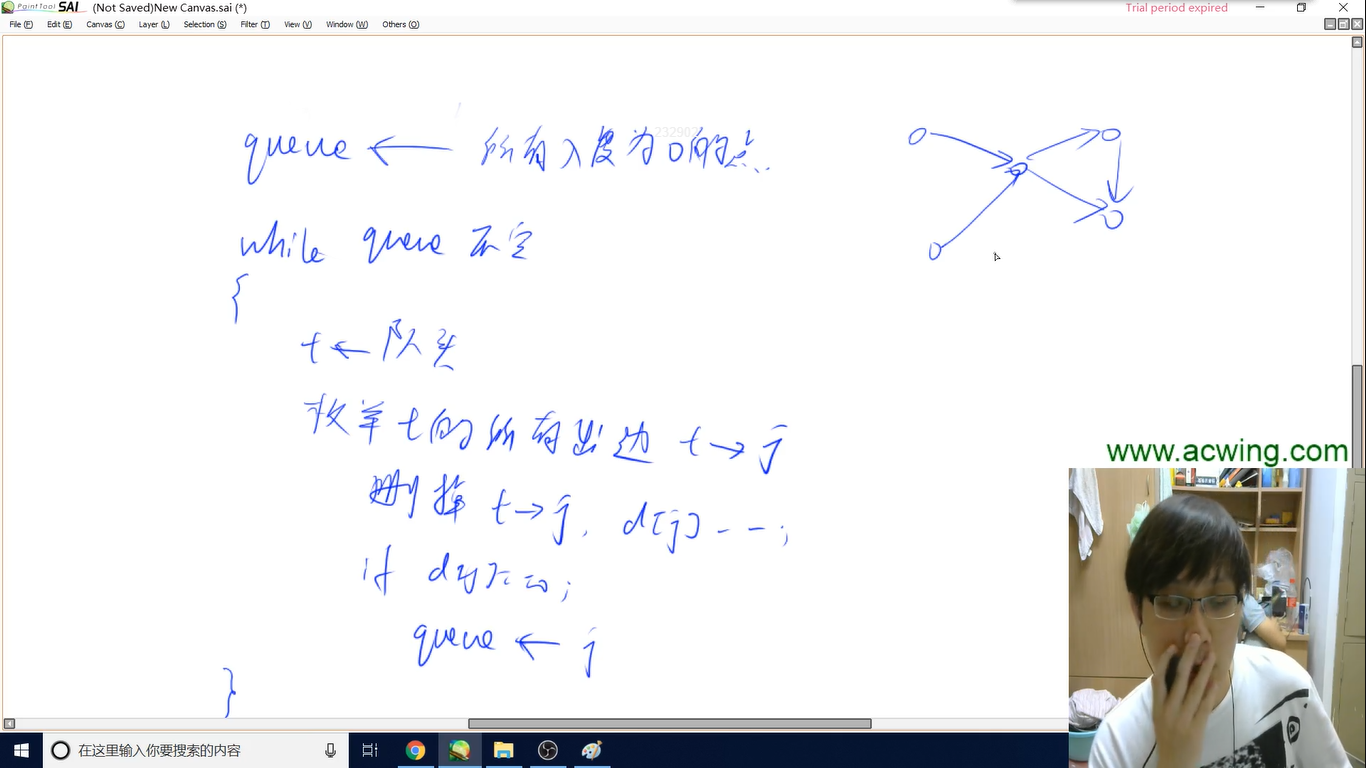 PaintTool SAI (Not Saved)New Canvas.sai (*)
Trial period expired
File (F) Edit (E) Canvas (C) Layer (L) Selection (S) Filter (T) View (V) Window (W) Others (O)
queue ← 所有入度为0的点
while queue 不空
{
t ← 队头
枚举 t 的所有出边 t → j
删掉 t → j, d[j] --;
if d[j] == 0;
queue ← j
}
www.acwing.com
在这里输入你要搜索的内容